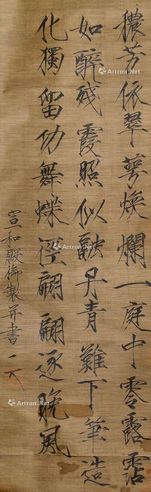 穠芳依翠萼煥爛一庭中零露霑
如醉殘霞照似融丹青難下筆造
化獨留功舞蝶迷翩翩逐晚風
宣和殿御製并書
Artron.Net
Artron.Net